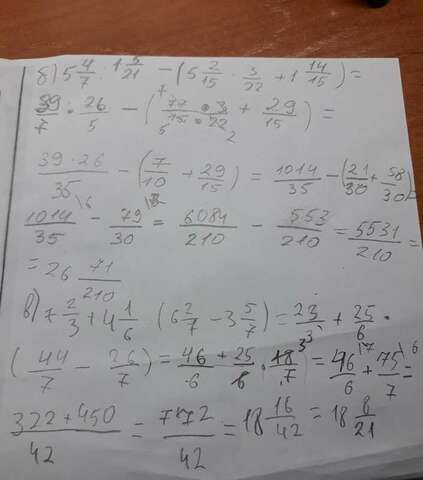 б) 5 4/7 · 1 5/21 − (5 2/15 · 3/22 + 1 14/15) =
39/7 · 26/5 − (77 · 3/15 · 22 + 29/15) =
39 · 26/35 − (7/10 + 29/15) = 1014/35 − (21/30 + 58/30) =
1014/35 \6 − 79/30 \7 = 6084/210 − 553/210 = 5531/210 =
= 26 71/210
в) 7 2/3 + 4 1/6 (6 2/7 − 3 5/7) = 23/3 + 25/6 ·
(44/7 − 26/7) = 46/6 + 25/6 · 18/7 = 46/6 \7 + 75/7 \6 =
322 + 450/42 = 772/42 = 18 16/42 = 18 8/21